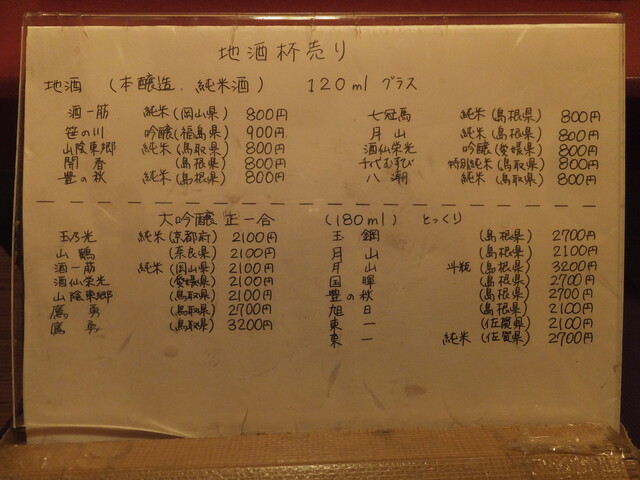 地酒杯売り
地酒 (本醸造、純米酒) 120ml グラス
酒一筋 純米(岡山県) 800円
笹の川 吟醸(福島県) 900円
山陰東郷 純米(鳥取県) 800円
開春 (島根県) 800円
豊の秋 純米(島根県) 800円
七冠馬 純米(島根県) 800円
月山 純米(島根県) 800円
酒仙栄光 吟醸(愛媛県) 800円
千代むすび 特別純米(鳥取県) 800円
八潮 純米(鳥取県) 800円
大吟醸 正一合 (180ml) とっくり
玉乃光 純米(京都府) 2100円
山鶴 (奈良県) 2100円
酒一筋 純米(岡山県) 2100円
酒仙栄光 (愛媛県) 2100円
山陰東郷 (鳥取県) 2100円
鷹勇 (鳥取県) 2700円
鷹勇 (鳥取県) 3200円
玉鋼 (島根県) 2700円
月山 (島根県) 2100円
月山 斗瓶 (島根県) 3200円
国暉 (島根県) 2700円
豊の秋 (島根県) 2700円
旭日 (島根県) 2100円
東一 (佐賀県) 2100円
東一 純米(佐賀県) 2700円